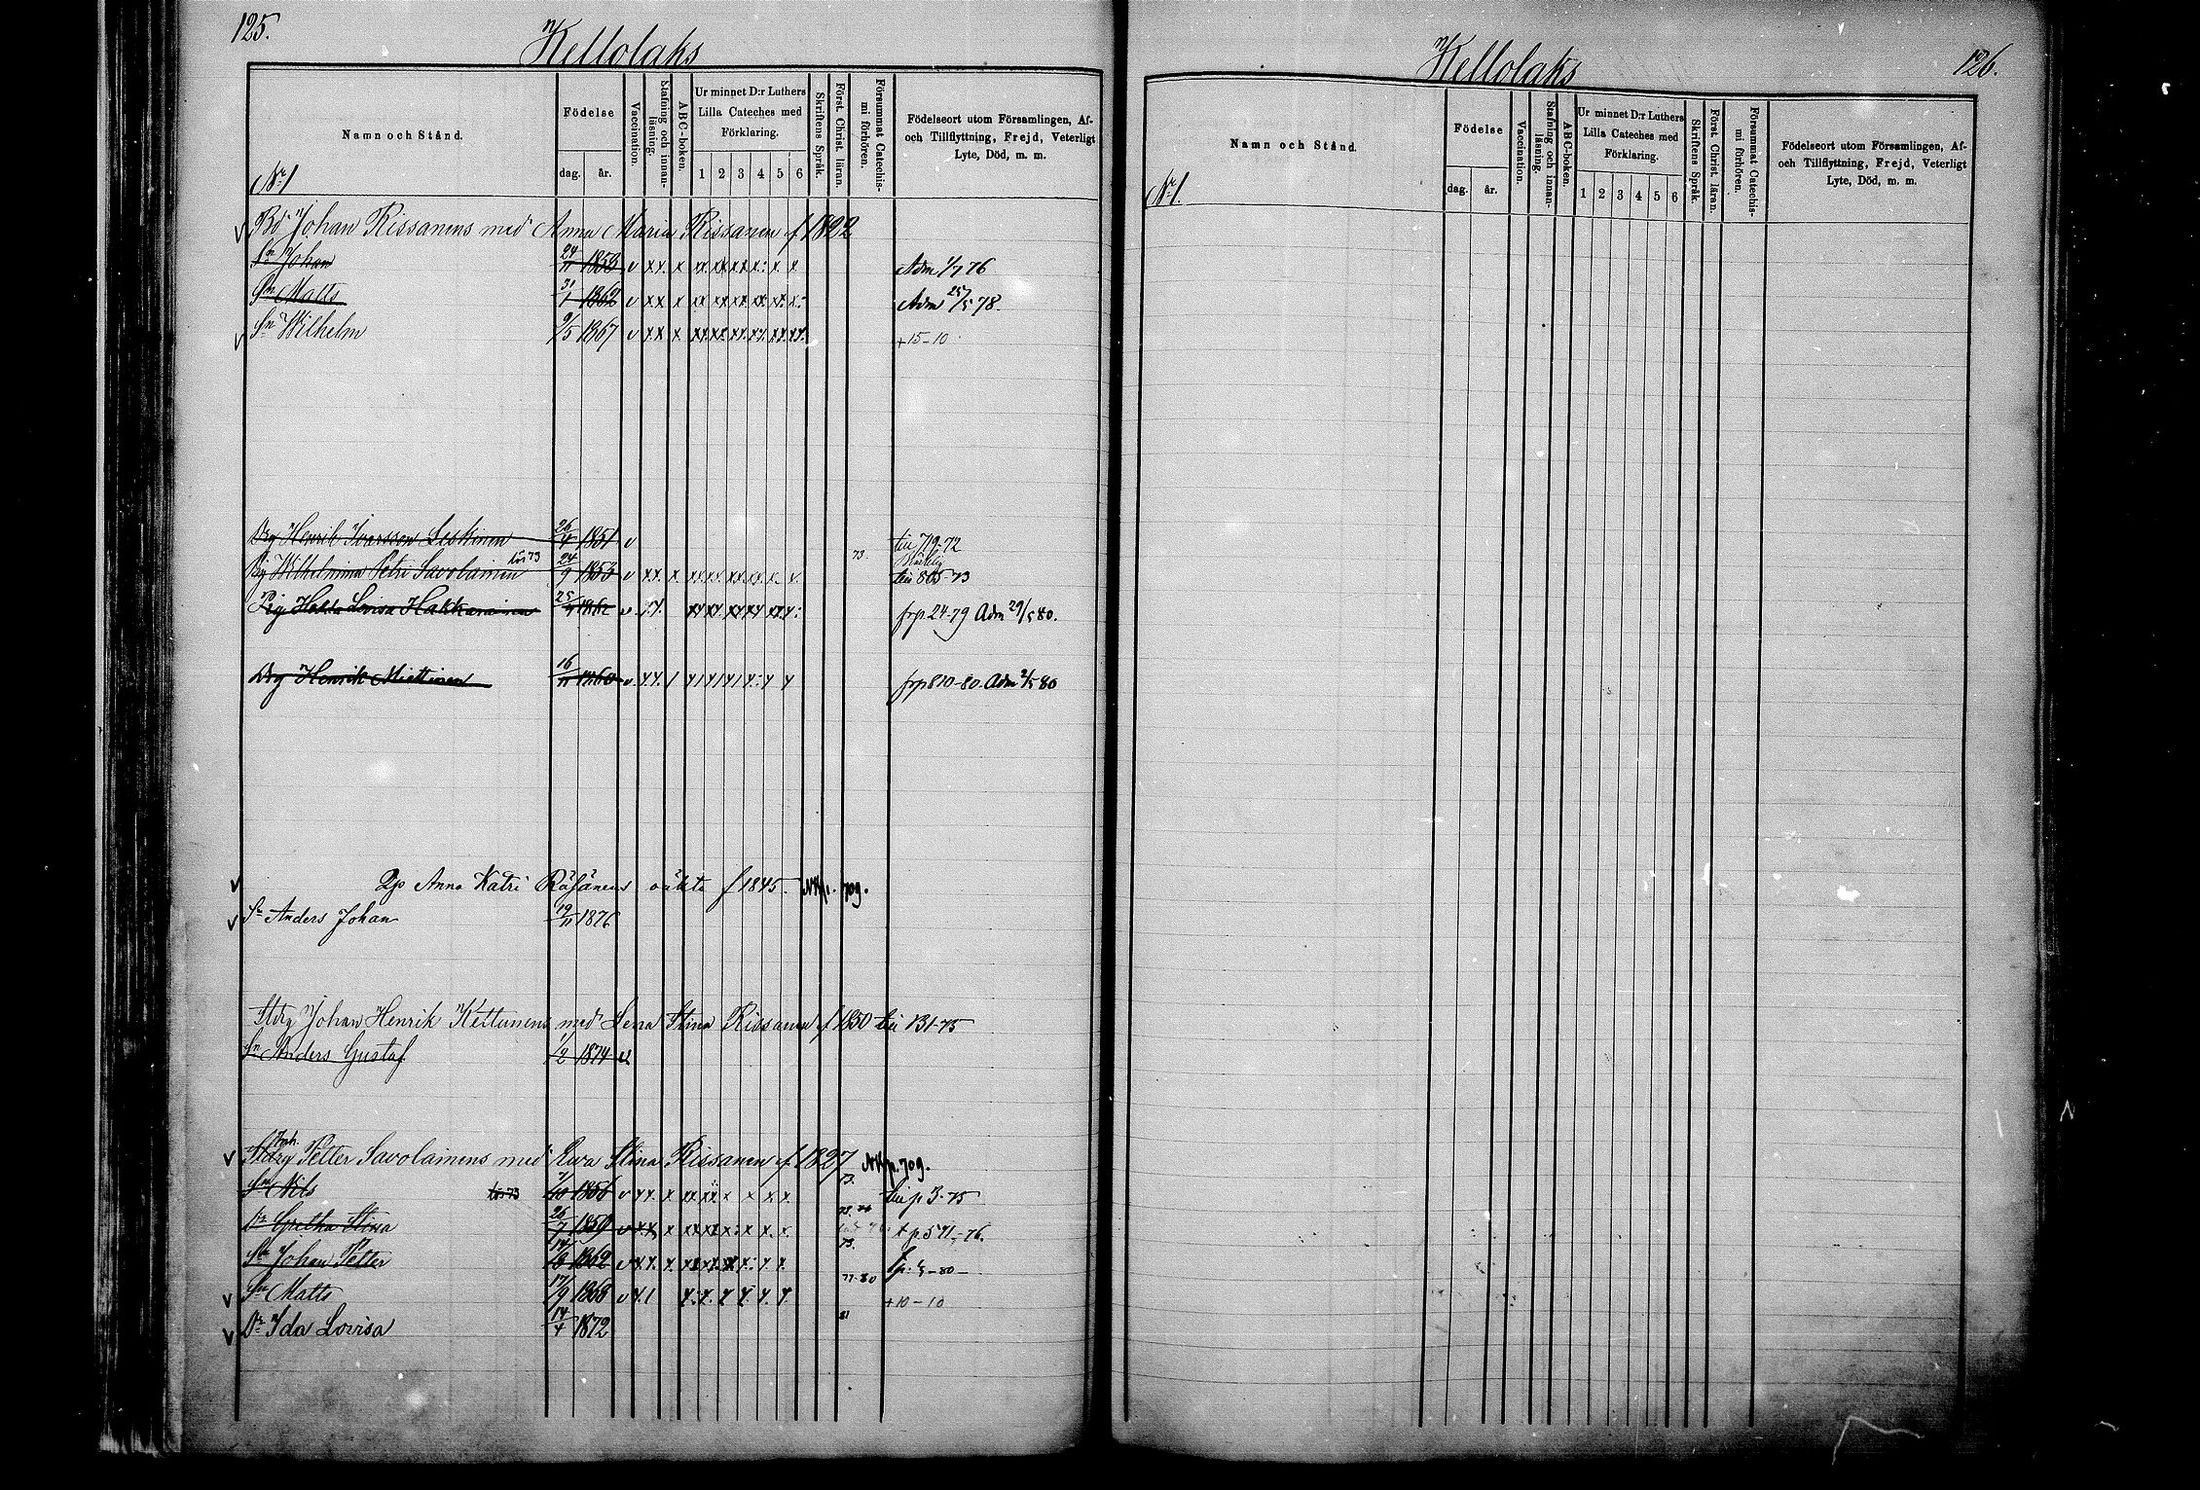 125.
Kellolaks
Namn och Stånd.
Födelse
dag. år.
Vaccination.
Stafning och innanläsning.
ABC-boken.
Ur minnet D:r Luthers
Lilla Cateches med
Förklaring.
1 2 3 4 5 6
Skriftens Språk.
Först. Christ. läran.
Försummat Catechismi förhören.
Födelseort utom Församlingen, Af-
och Tillflyttning, Frejd, Veterligt
Lyte, Död, m. m.
N:r 1
v Bd Johan Rissanens med Anna Maria Rissanen f 1822
Sn Johan 24/11 1853 v xx x xx xx xx x: x x Adm 1/7 76
Sn Matts 31/1 1862 v xx x xx xx xx xx xx x: Adm 25/5 78.
v Sn Wilhelm 9/5 1867 v xx x xx xx xx xx xx xx +15-10
Drg Henrik Ivarsson Leskinen 26/4 1851 v tu 719-72
Pig Wilhelmina Petri Savolainen 73 24/9 1853 v xx x xx xx xx xx x x 73. tu 865-73
Pig Lovisa Hakkarainen 25 1862 v xx. xx xx xx xx xx x: frp 24-79 Adm 29/5 80.
Drg Henrik Miettinen 16/11 1860 v xx / frp 810-80. Adm 2/5 80
v Anna Katri Räsänens oäkta f 1845 709.
v Sn Anders Johan 19/11 1876
Stdrg Johan Henrik Kettunens med Lena Stina Rissanen f 1850 tu 131-75
Sn Anders Gustaf 1/2 1874 v
Inh.
v Stdrg Petter Savolainens med Ewa Stina Rissanen f 1827 p. 709.
Sn Nils 73 7/10 1856 v xx x xx xx x x x x 73. tu p 3-75
Dr Gretha Stina 26/7 1859 v xx x xx xx x: x x x t p 571-76.
Sn Johan Petter 1862 v xx x 73.
v Sn Matts 17/9 1868 v x 1 x: x x x x x 77. 80 +10-10
v Dr Ida Lovisa 14/4 1872 81
Kellolaks
126.
Namn och Stånd.
Födelse
dag. år.
Vaccination.
Stafning och innanläsning.
ABC-boken.
Ur minnet D:r Luthers
Lilla Cateches med
Förklaring.
1 2 3 4 5 6
Skriftens Språk.
Först. Christ. läran.
Försummat Catechismi förhören.
Födelseort utom Församlingen, Af-
och Tillflyttning, Frejd, Veterligt
Lyte, Död, m. m.
N:r 1.